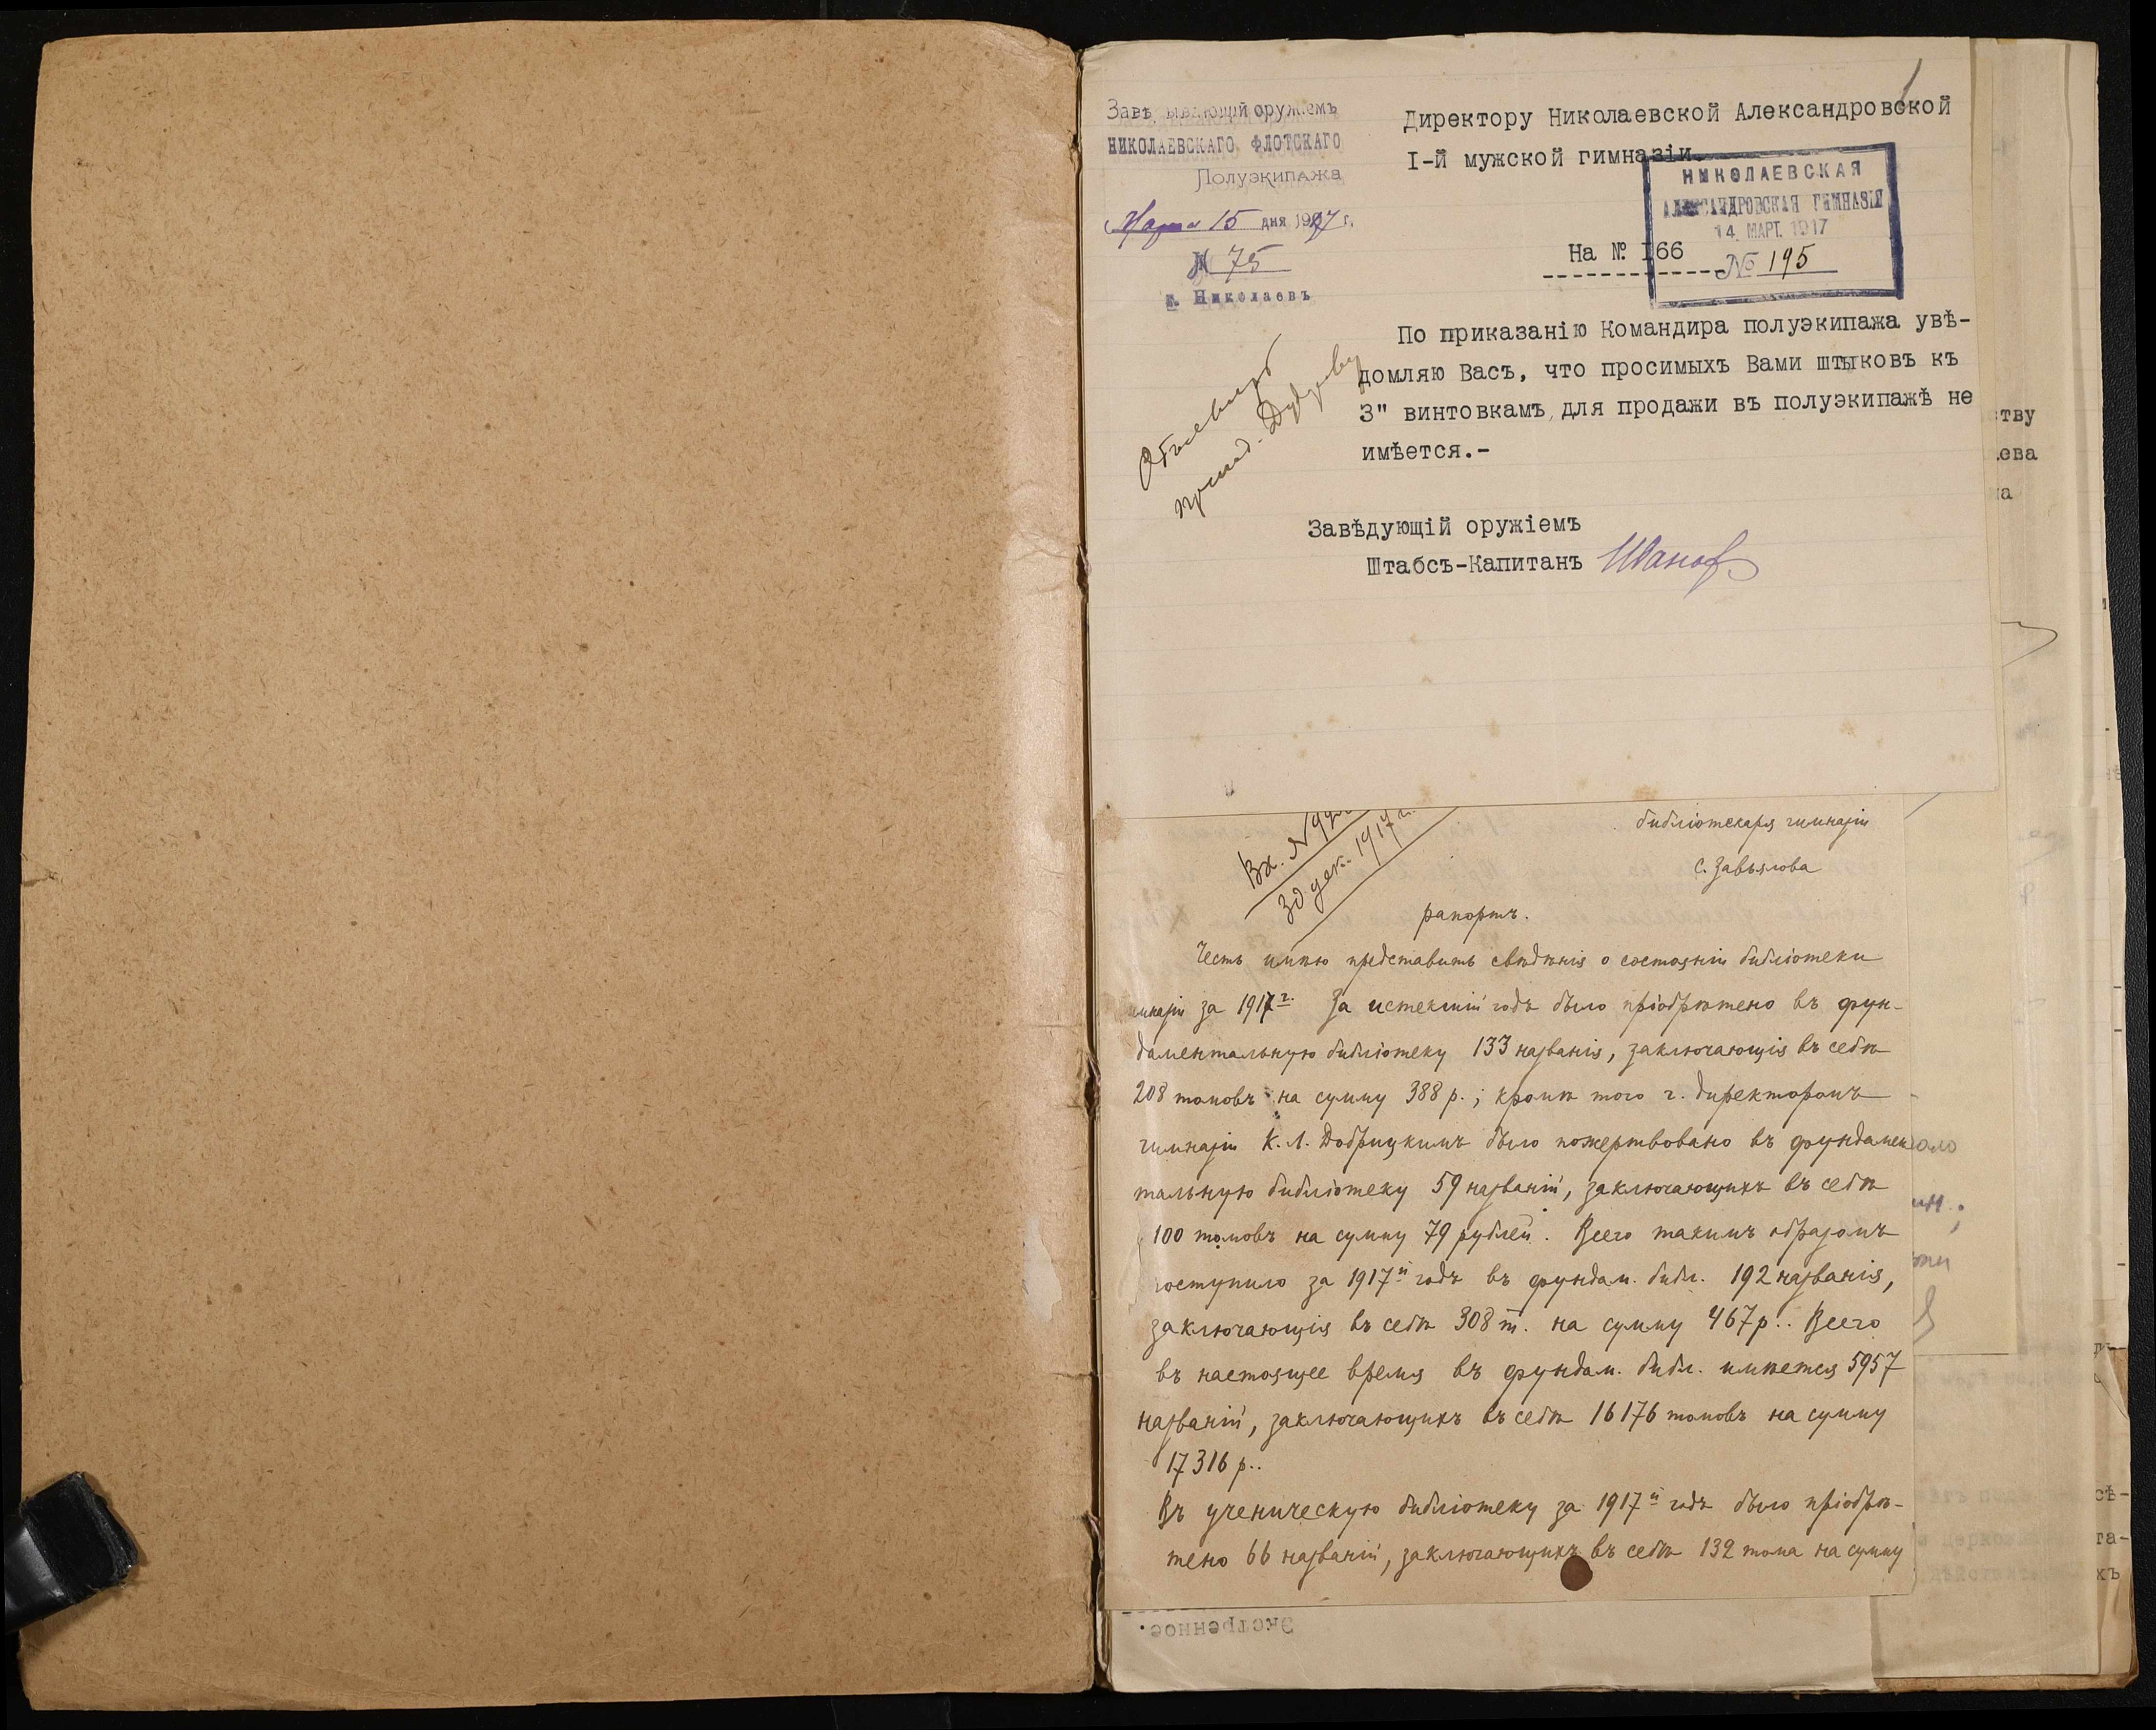 Завѣдывающій оружіемъ
НИКОЛАЕВСКАГО ФЛОТСКАГО
Полуэкипажа
Марта 15 дня 1917 г.
№ 75
г. Николаевъ
Директору Николаевской Александровской
I-й мужской гимназіи.
НИКОЛАЕВСКАЯ
АЛЕКСАНДРОВСКАЯ ГИМНАЗІЯ
14. МАРТ. 1917
№ 195
На № I66
По приказанію Командира полуэкипажа увѣ-
домляю Васъ, что просимыхъ Вами штыковъ къ
3" винтовкамъ для продажи въ полуэкипажѣ не
имѣется.-
Завѣдующій оружіемъ
Штабсъ-Капитанъ Иванов
Вх. №
30 дек. 1917 г.
библіотекаря гимназіи
С. Завьялова
рапортъ.
Честь имѣю представить свѣдѣнія о состояніи библіотеки
имназіи за 1917 г. За истекшій годъ было пріобрѣтено въ фун-
даментальную библіотеку 133 названія, заключающія въ себѣ
208 томовъ на сумму 388 р.; кромѣ того г. директоромъ
гимназіи К. Л. Добрицкимъ было пожертвовано въ фундамен
тальную библіотеку 59 названій, заключающихъ въ себѣ
100 томовъ на сумму 79 рублей. Всего такимъ образомъ
поступило за 1917й годъ въ фундам. библ. 192 названія,
заключающія въ себѣ 308 т. на сумму 467 р.. Всего
въ настоящее время въ фундам. библ. имѣется 5957
названій, заключающихъ въ себѣ 16176 томовъ на сумму
17316 р..
Въ ученическую библіотеку за 1917й годъ было пріобрѣ-
тено 66 названій, заключающихъ въ себѣ 132 тома на сумму
Экстренное.
ству
ева